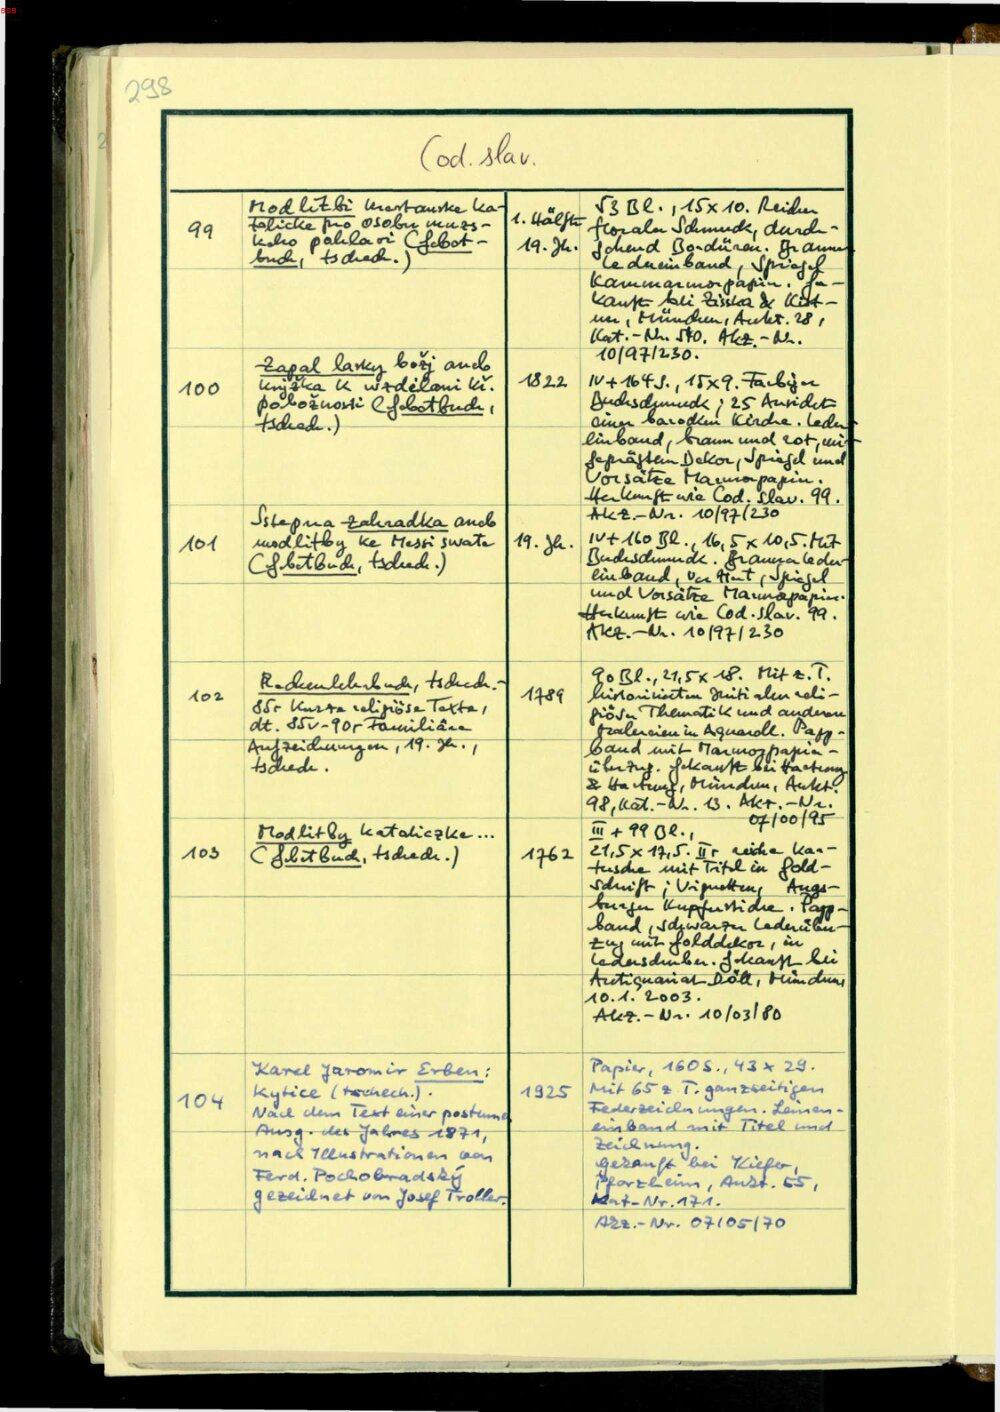 298
Cod. slav.
99
Modlitbi krestanske ka-
tolicke pro osobu muzs-
keho pohlavi (Gebet-
buch, tschech.)
1. Hälfte
19. Jh.
53 Bl., 15x10. Reicher
floraler Schmuck, durch-
gehend Bordüren. Brauner
Ledereinband, Spiegel
Kammarmorpapier. Ge-
kauft bei Zisska & Kist-
ner, München, Aukt. 28,
Kat.-Nr. 540. Akz.-Nr.
10/97/230.
100
Zapal lasky božj aneb
knjžka k wzdělani kř.
pobožnosti (Gebetbuch,
tschech.)
1822
IV + 164 S., 15x9. Farbiger
Buchschmuck; 25 Ansicht
einer barocken Kirche. Leder-
einband, braun und rot, mit
geprägtem Dekor, Spiegel und
Vorsätze Marmorpapier.
Herkunft wie Cod. slav. 99.
Akz.-Nr. 10/97/230
101
Sstepna zahradka aneb
modlitby ke Messi swate
(Gebetbuch, tschech.)
19. Jh.
IV + 160 Bl., 16,5 x 10,5. Mit
Buchschmuck. Brauner Leder-
einband, Spiegel
und Vorsätze Marmorpapier.
Herkunft wie Cod. slav. 99.
Akz.-Nr. 10/97/230
102
Rechenlehrbuch, tschech.-
85r Kurze religiöse Texte,
dt. 85v-90r Familiäre
Aufzeichnungen, 19. Jh.,
tschech.
1789
90 Bl., 21,5 x 18. Mit z. T.
historisierten Initialen reli-
giöser Thematik und anderen
Malereien in Aquarell. Papp-
band mit Marmorpapier-
überzug. Gekauft bei Hartung
& Hartung, München, Aukt.
98, Kat.-Nr. 13. Akz.-Nr.
07/00/95
103
Modlitby kataliczke...
(Gebetbuch, tschech.)
1762
III + 99 Bl.,
21,5 x 17,5. IIr reiche Kar-
tusche mit Titel in Gold-
schrift; Vignetten, Augs-
burger Kupferstiche. Papp-
band, schwarzer Lederüber-
zug mit Golddekor, in
Lederschuber. Gekauft bei
Antiquariat Döll, München
10.1.2003.
Akz.-Nr. 10/03/80
104
Karel Jaromir Erben:
Kytice (tschech.).
Nach dem Text einer postumen
Ausg. des Jahres 1871,
nach Illustrationen von
Ferd. Pochobradský
gezeichnet von Josef Troller.
1925
Papier, 160 S., 43 x 29.
Mit 65 z. T. ganzseitigen
Federzeichnungen. Leinen-
einband mit Titel und
Zeichnung.
Gekauft bei Kiefer,
Pforzheim, Aukt. 55,
Kat-Nr. 171.
Akz.-Nr. 07/05/70